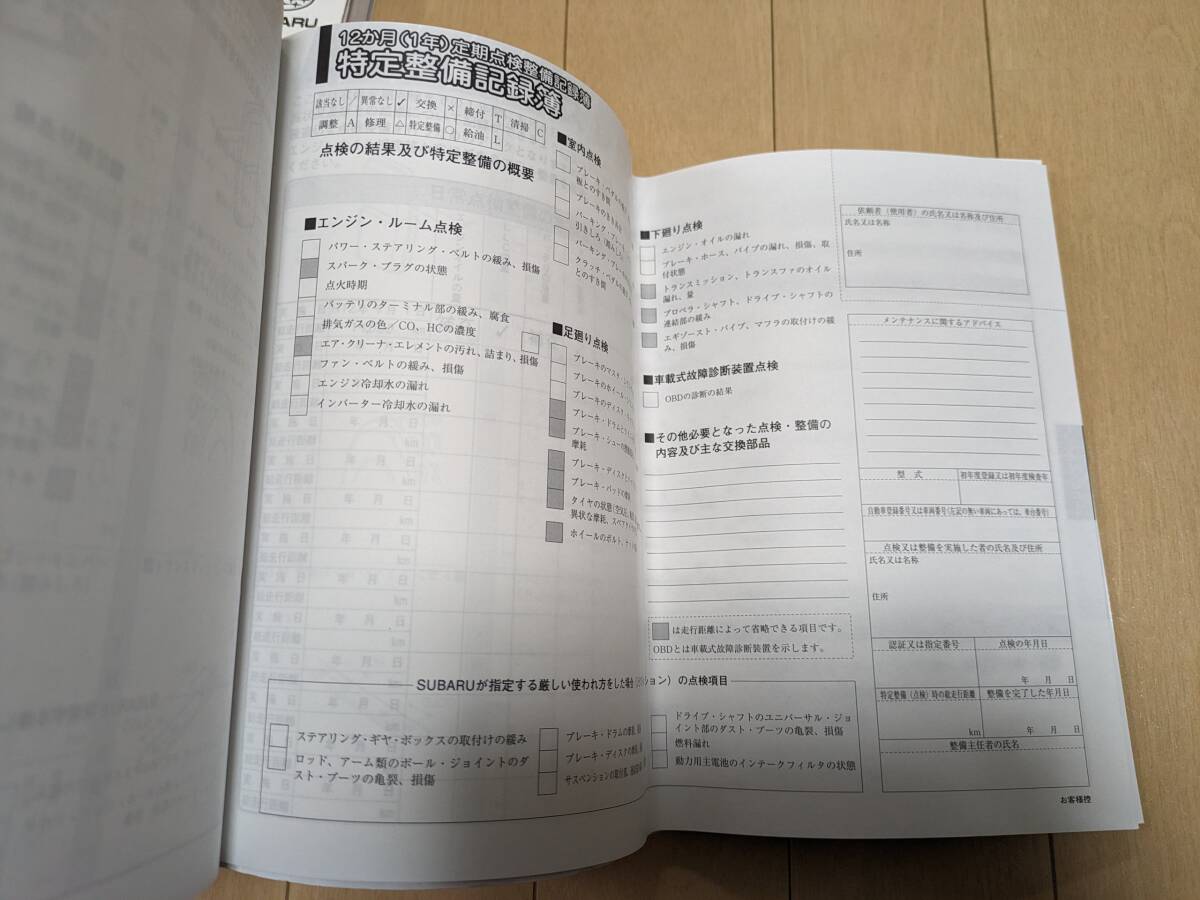 ARU
12か月(1年)定期点検整備記録簿
特定整備記録簿
該当なし / 異常なし ✓ 交換 × 締付 T 清掃 C
調整 A 修理 △ 特定整備 ○ 給油 L
点検の結果及び特定整備の概要
■エンジン・ルーム点検
パワー・ステアリング・ベルトの緩み、損傷
スパーク・プラグの状態
点火時期
バッテリのターミナル部の緩み、腐食
排気ガスの色/CO、HCの濃度
エア・クリーナ・エレメントの汚れ、詰まり、損傷
ファン・ベルトの緩み、損傷
エンジン冷却水の漏れ
インバーター冷却水の漏れ
■室内点検
ブレーキ・ペダルの
板とのすき間
ブレーキのきき具合
パーキング・ブレーキ
引きしろ
パーキング・ブレーキの
クラッチ・ペダルの
とのすき間
■足廻り点検
ブレーキのマスタ
ブレーキのホイール
ブレーキのディスク
ブレーキ・ドラムと
ブレーキ・シューの
摩耗
ブレーキ・ディスクと
ブレーキ・パッドの
タイヤの状態
異状な摩耗、スペアタイヤ
ホイールのボルト、ナット
■下廻り点検
エンジン・オイルの漏れ
ブレーキ・ホース、パイプの漏れ、損傷、取
付状態
トランスミッション、トランスファのオイル
漏れ、量
プロペラ・シャフト、ドライブ・シャフトの
連結部の緩み
エギゾースト・パイプ、マフラの取付けの緩
み、損傷
■車載式故障診断装置点検
OBDの診断の結果
■その他必要となった点検・整備の
内容及び主な交換部品
は走行距離によって省略できる項目です。
OBDとは車載式故障診断装置を示します。
依頼者(使用者)の氏名又は名称及び住所
氏名又は名称
住所
メンテナンスに関するアドバイス
型式 初年度登録又は初年度検査年
自動車登録番号又は車両番号(左記の無い車両にあっては、車台番号)
点検又は整備を実施した者の氏名及び住所
氏名又は名称
住所
認証又は指定番号 点検の年月日
年 月 日
特定整備(点検)時の総走行距離 整備を完了した年月日
km 年 月 日
整備主任者の氏名
お客様控
SUBARUが指定する厳しい使われ方をした場合 の点検項目
ステアリング・ギヤ・ボックスの取付けの緩み
ロッド、アーム類のボール・ジョイントのダ
スト・ブーツの亀裂、損傷
ブレーキ・ドラムの
ブレーキ・ディスクの
サスペンションの
ドライブ・シャフトのユニバーサル・ジョ
イント部のダスト・ブーツの亀裂、損傷
燃料漏れ
動力用主電池のインテークフィルタの状態